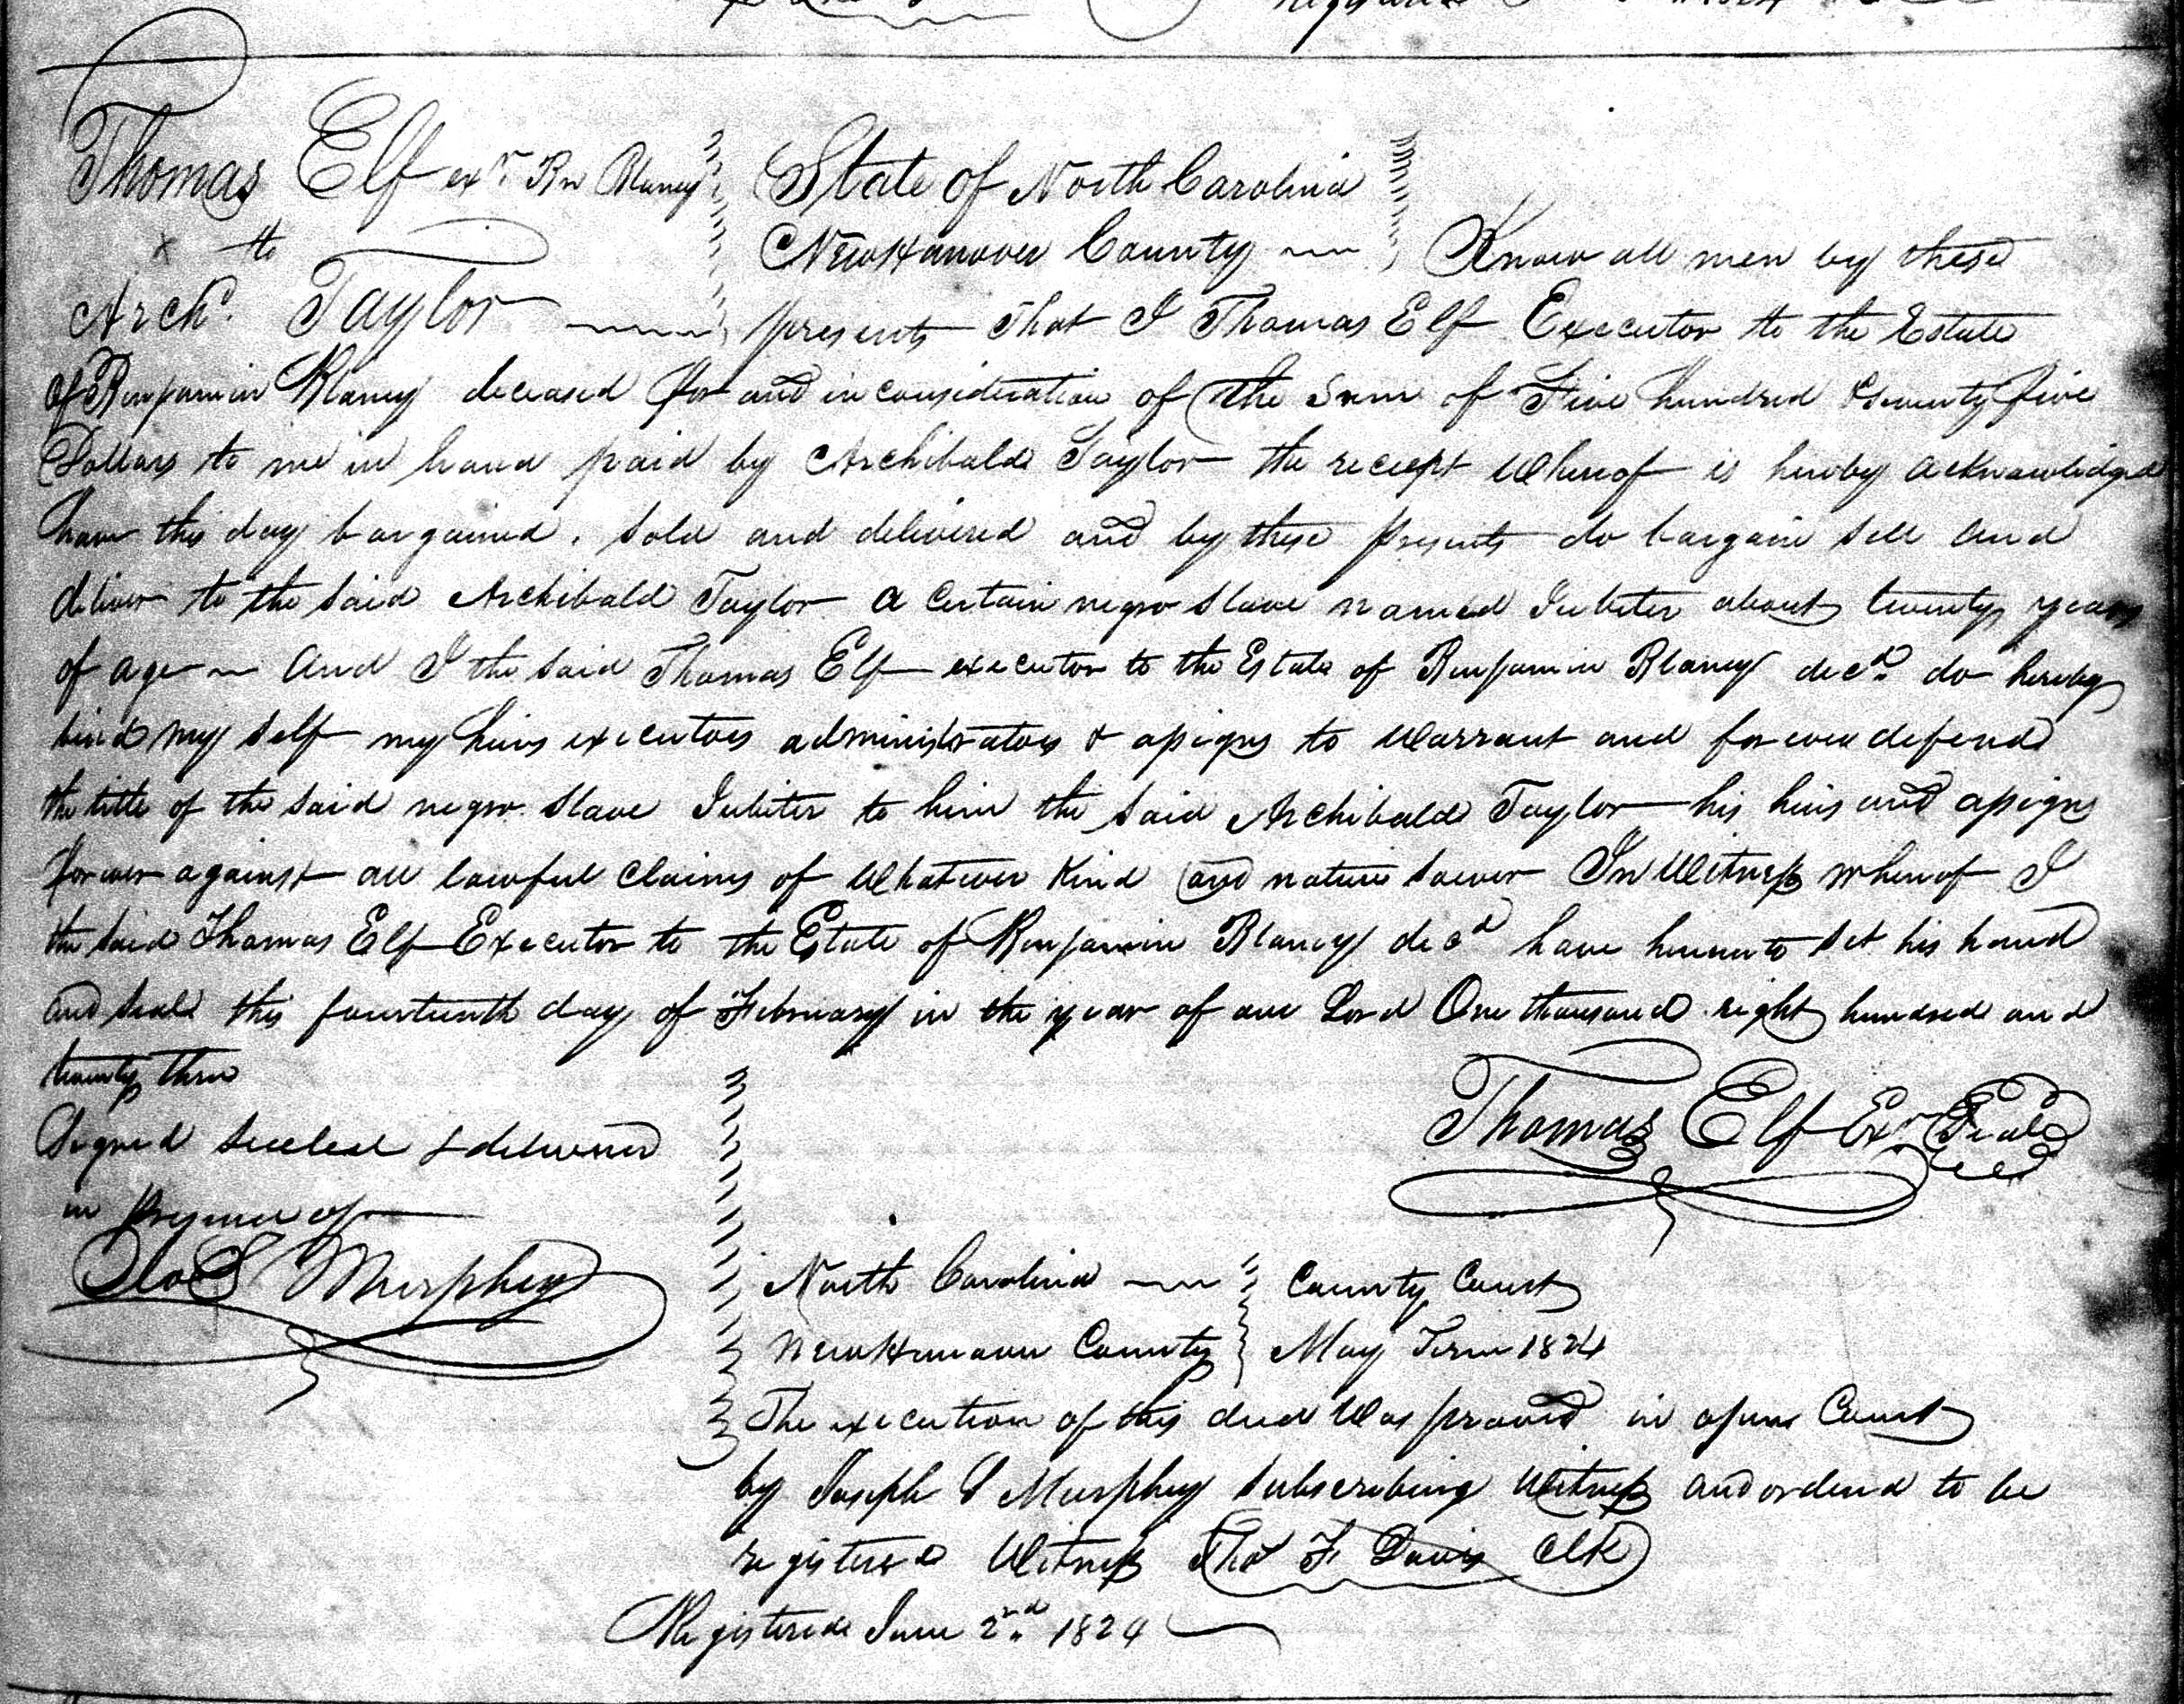 Thomas Elf exr. Bn Blaney
to
Archd. Taylor
State of North Carolina
New Hanover County Know all men by these
presents that I Thomas Elf Executor to the Estate
of Benjamin Blaney deceased for and in consideration of the Sum of Five hundred & seventy five
Dollars to me in hand paid by Archibald Taylor the reciept Whereof is hereby acknowledged
have this day bargained, sold and delivered and by these presents do bargain sell and
deliver to the said Archibald Taylor a certain negro slave named Jubiter about twenty years
of age and I the said Thomas Elf executor to the Estate of Benjamin Blaney decd. do hereby
bind my self my heirs executors administrators & assigns to Warrant and forever defend
the title of the said negro slave Jubiter to him the said Archibald Taylor his heirs and assigns
forever against all lawful claims of Whatever Kind and nature soever In Witness whereof I
the said Thomas Elf Executor to the Estate of Benjamin Blaney decd have hereunto set his hand
and seal this fourteenth day of February in the year of our Lord One thousand eight hundred and
twenty three
Thomas Elf Exr Seal
Signed sealed & delivered
in presence of
Jos S Murphey
North Carolina County Court
New Hanover County May Term 1824
The execution of this deed Was proved in open Court
by Joseph S Murphey subscribing Witness and ordered to be
registered Witness Thos F. Davis Clk
Registered June 2nd. 1824